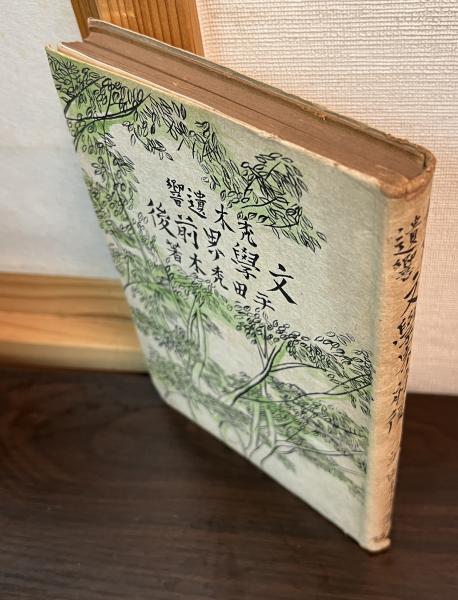 禿木遺響
文學界前後
平田禿木著
遺響
文學界前後